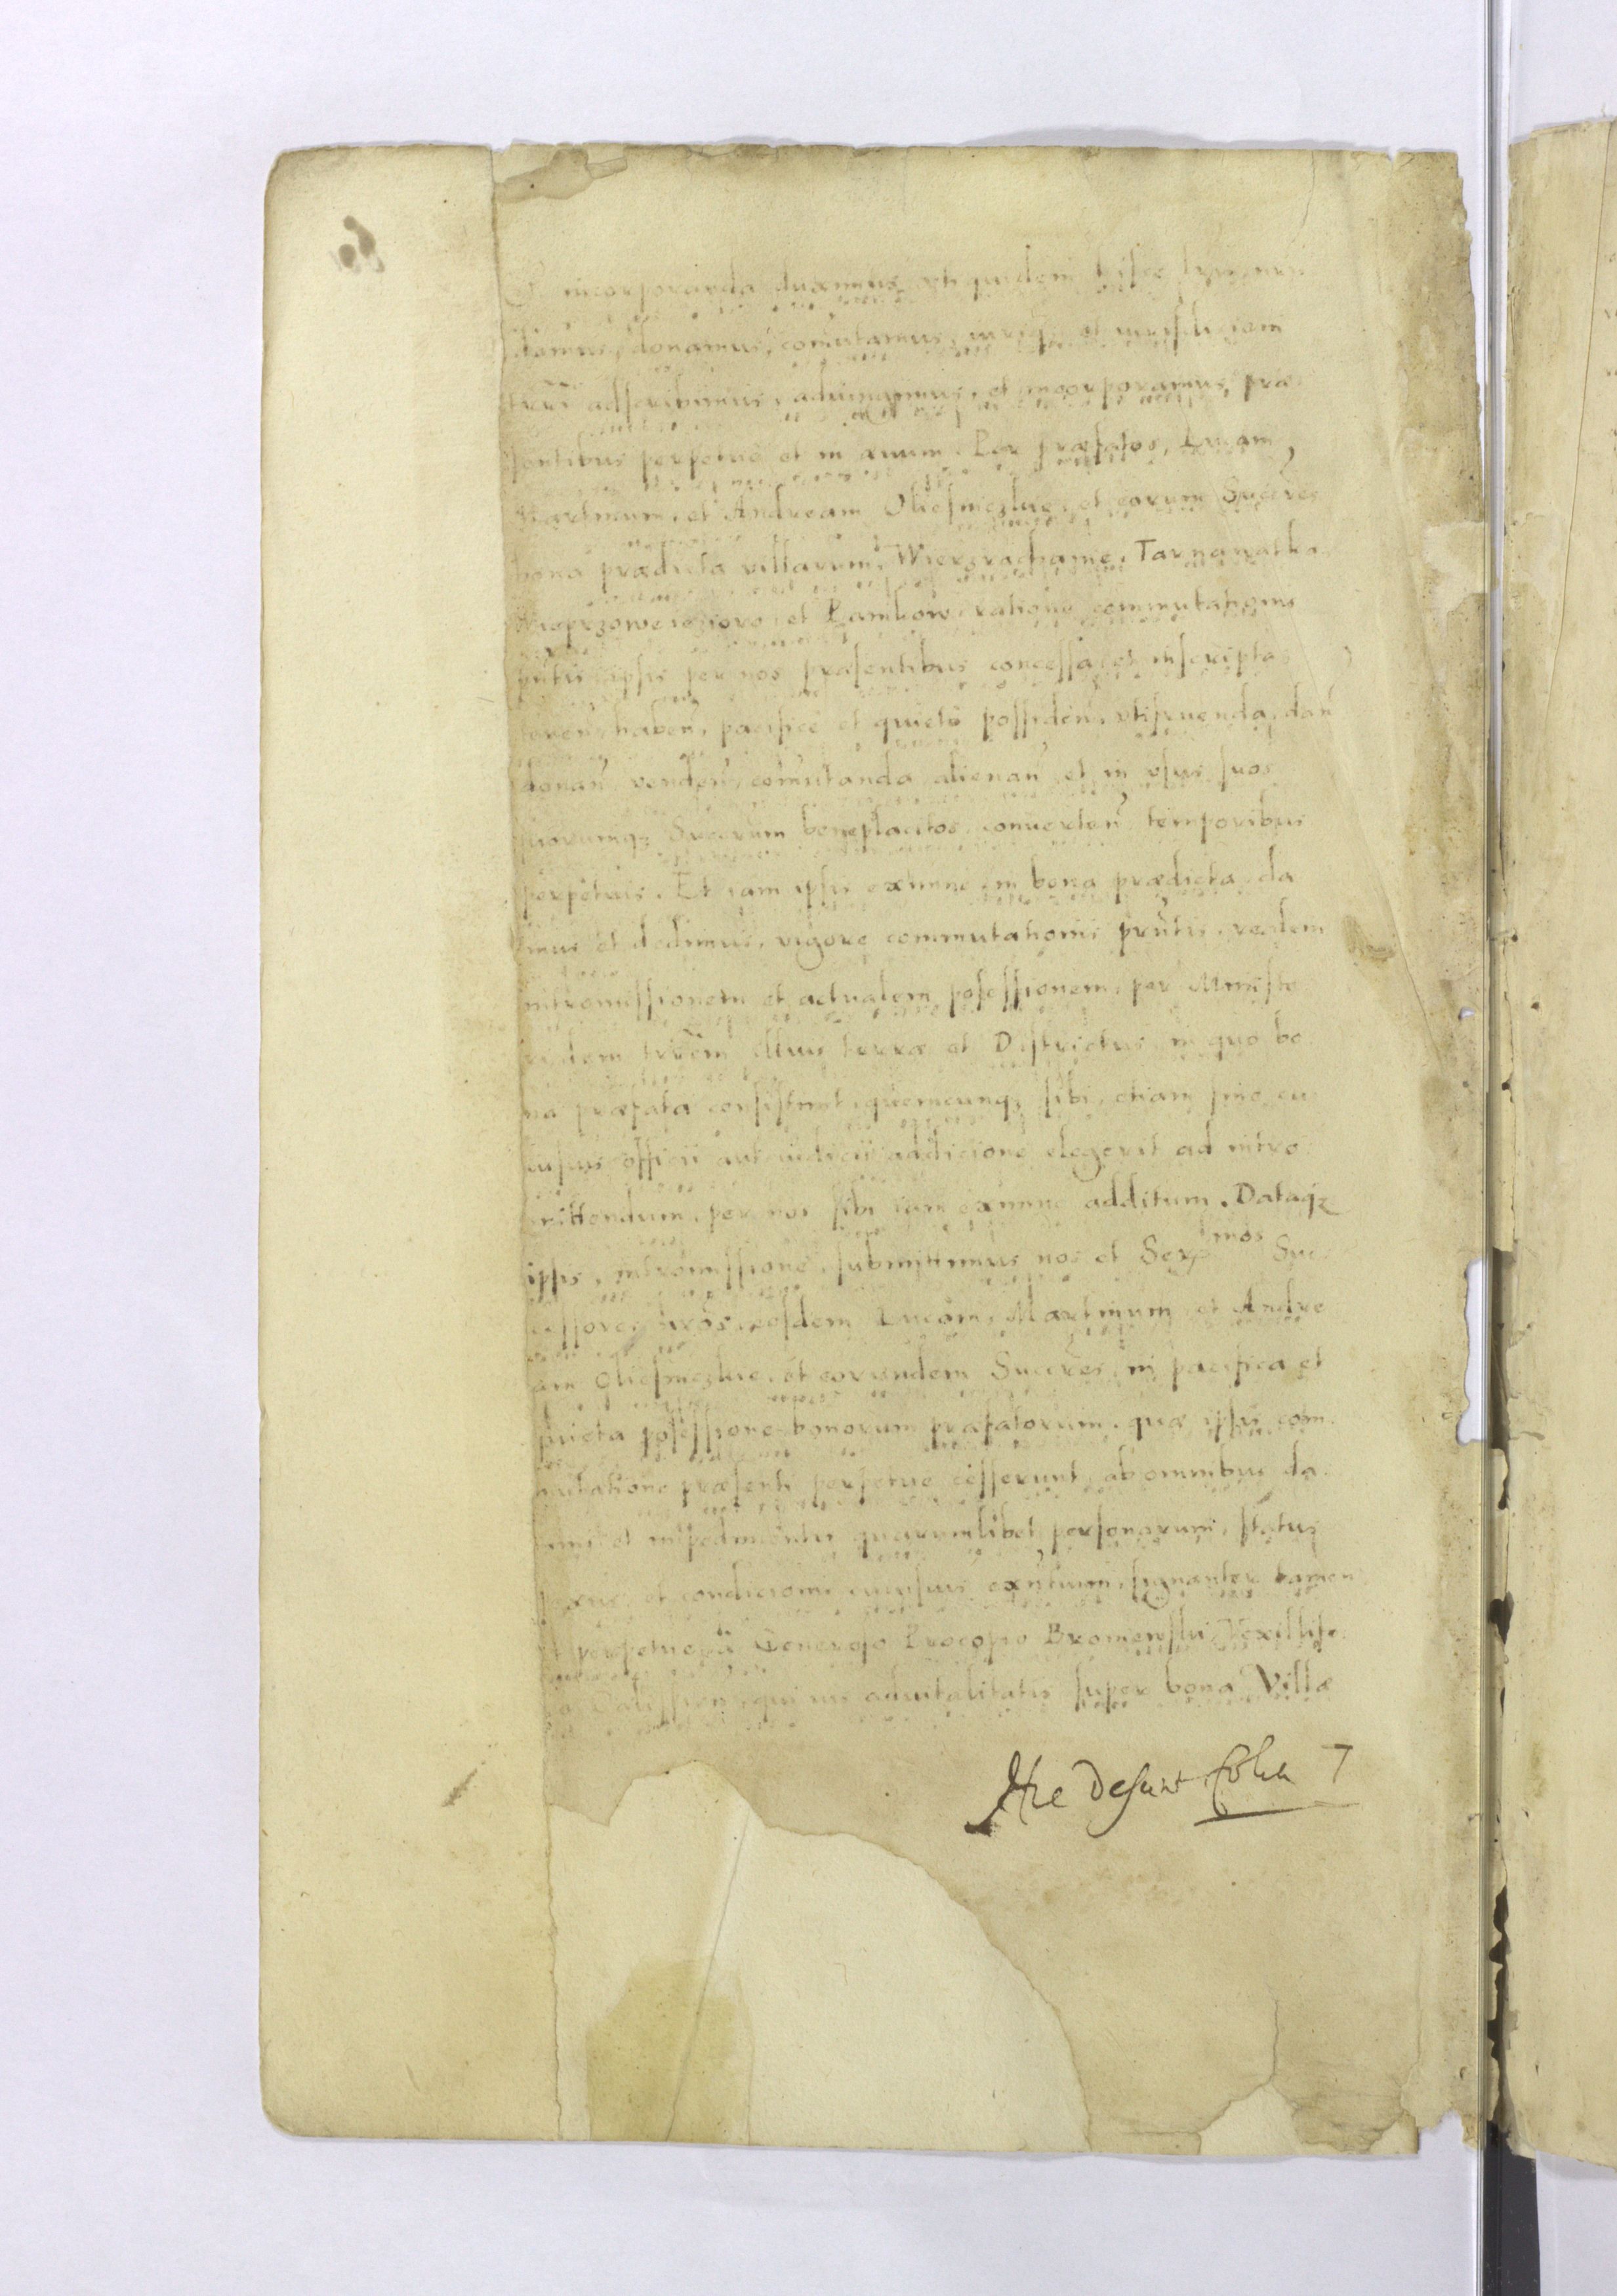 incorporanda duximus uti quidem hisce
damus, donamus, comutamus, iurique et iurisdictioni
trri adscribimus, adunamus, et incorporamus præ
sentibus perpetuo et in ævum. Per præfatos, Lucam,
Martinum, et Andream Oliesniczkie, et eorum Succres
bona prædicta villarum, Wierzrachanie, Tarnawatka
Wieprzowe iezioro, et Pankow, ratione commutationis
pntis ipsis per nos præsentibus concessa, et inscripta
tenen, haben, pacifice et quiete possiden, utifruenda, dan
donan, venden, comutanda, alienan, et in usus suos
suorumq Succrum beneplacitos, converten temporibus
perpetuis. Et iam ipsis exnunc in bona prædicta da
mus et dedimus, vigore commutationis pntis, realem
intromissionem et actualem possessionem, per Ministe
rialem trrem illius terræ et Districtus in quo bo
na præfata consistunt, quemcunq sibi, etiam sine cu
iusvis officii aut iudicii addicione elegerit ad intro
mittendum, per nos sibi iam exnunc additum. Dataq
ipsis, intromissione, submittimus nos et Sermos Suc
cessores nros, eosdem Lucam, Martinum et Andre
am Oliesniczkie, et eorundem Succres, in pacifica et
quieta possessione bonorum præfatorum, quæ ipsis com
mutatione præsenti perpetuo cesserunt, ab omnibus da
mnis et impedimentis quarumlibet personarum, status
sexus, et condicionis cuiusvis exntium, signanter tamen
et perpetue a Generoso Procopio Broniewski Vexillife
ro Calissien, qui ius advitalitatis super bona Villæ
Hic desunt folia 7